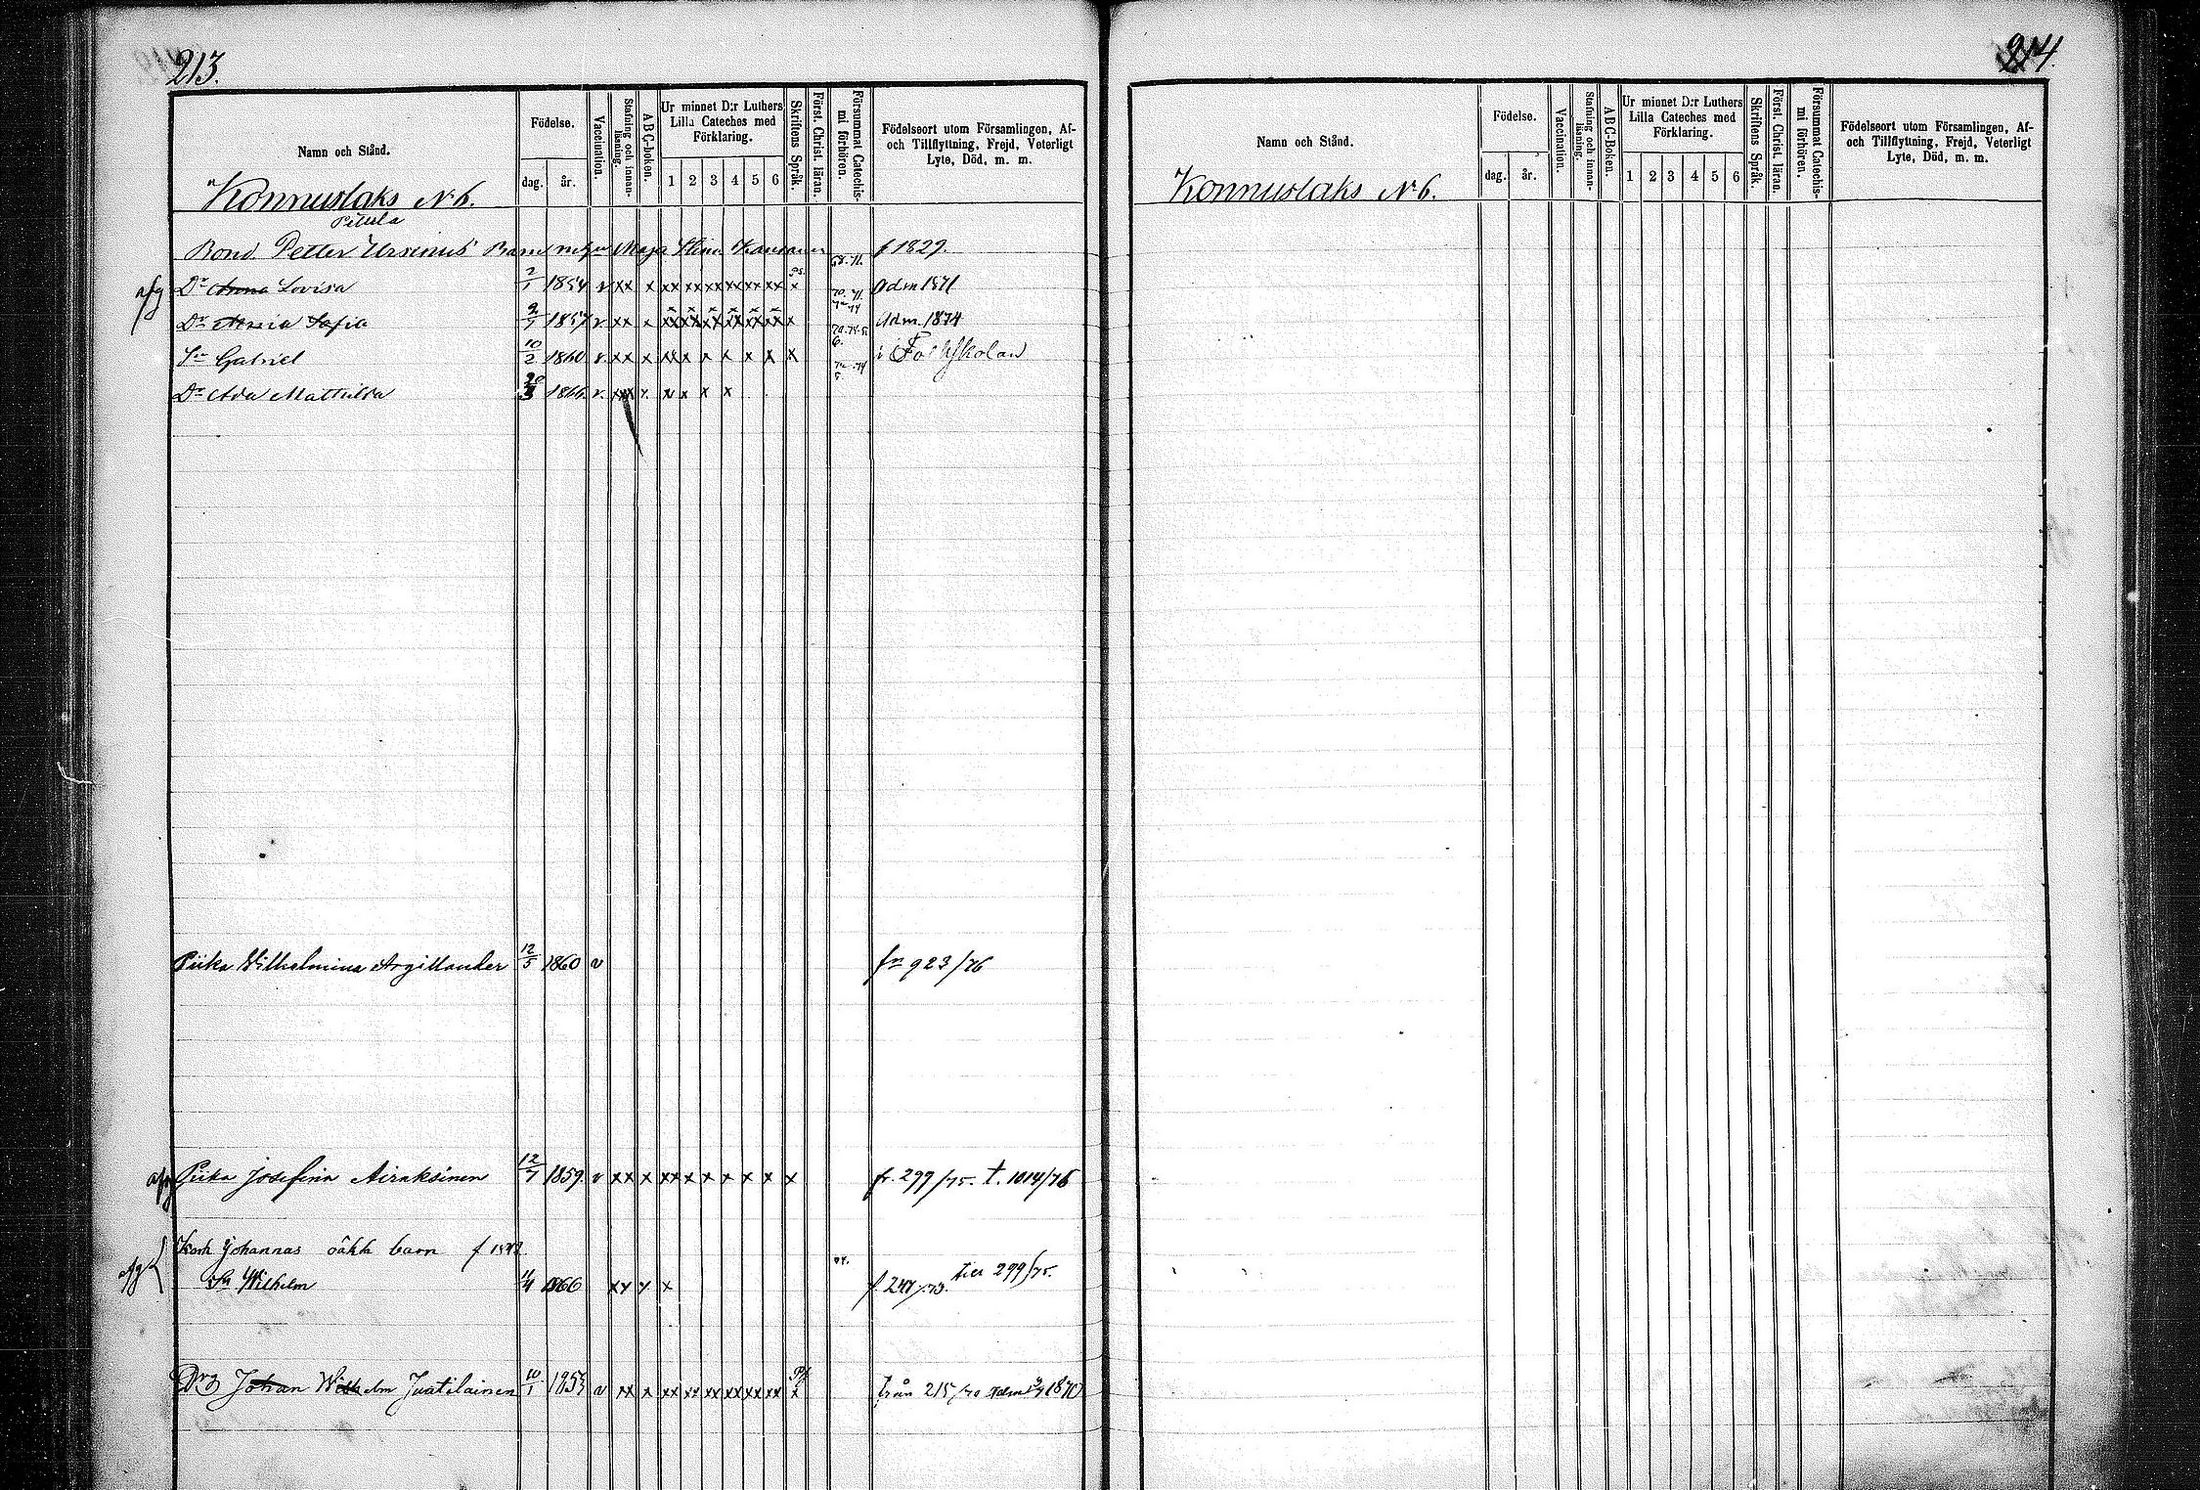 213.
Namn och Stånd.
Födelse.
dag.
år.
Vaccination.
Stafning och innan-
läsning.
ABC-boken.
Ur minnet D:r Luthers
Lilla Cateches med
Förklaring.
1 2 3 4 5 6
Skriftens Språk.
Först. Christ. läran.
Försummat Catechis-
mi förhören.
Födelseort utom Församlingen, Af-
och Tillflyttning, Frejd, Veterligt
Lyte, Död, m. m.
Konnuslaks No 6.
Bond. Petter Ursinus Barn Maja Stina f 1829.
afg Dr Anna Lovisa 2/1 1854 v xx x xx xx xx xx xx xx x Adm 1871
Dr Maria Sofia 2/7 1857 v xx x x Adm. 1874
Sn Gabriel 10/2 1860 v. xx x xx x x x x x x i Folkskolan
Dr Ada Mathilda 1866 v. x x x x
Piika Wilhelmina Argillander 12/5 1860 v fn 923/76
Piika Josefina Airaksinen 12/7 1859. v xx x xx x x x x x x fr. 299/75. t. 1014/76
Johannas barn f
afg Sn Wilhelm 1866 xx x x f 247/73. till 299/75.
Drg Johan Wilhelm Juutilainen 10/1 1853 v xx x xx xx xx xx xx xx x från 215/70 1870
214.
Namn och Stånd.
Födelse.
dag.
år.
Vaccination.
Stafning och innan-
läsning.
ABC-Boken.
Ur minnet D:r Luthers
Lilla Cateches med
Förklaring.
1 2 3 4 5 6
Skriftens Språk.
Först. Christ. läran.
Försummat Catechis-
mi förhören.
Födelseort utom Församlingen, Af-
och Tillflyttning, Frejd, Veterligt
Lyte, Död, m. m.
Konnuslaks No 6.